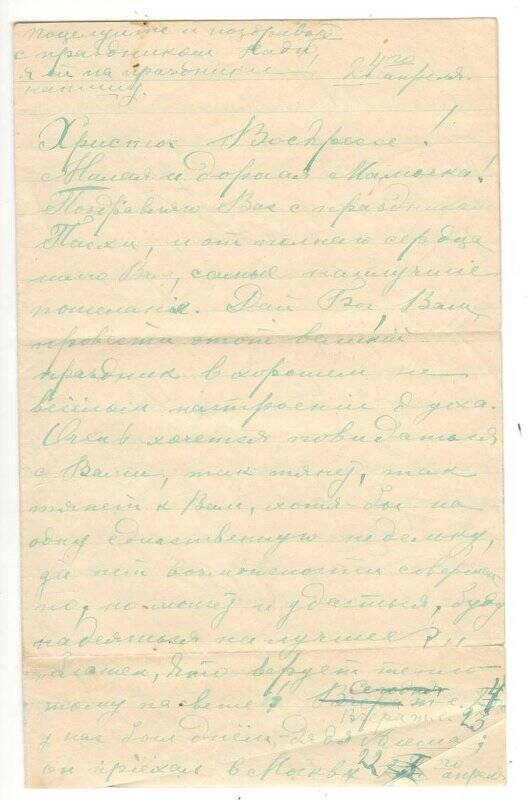 Поцелуйте и поздравьте
с праздником Надю,
я ей на празднике
напишу.
24го апреля.
Христос Воскресе!
Милая и дорогая Мамочка!
Поздравляю Вас с праздником
Пасхи, и от полнаго сердца
шлю Вам, самые наилучшiе
пожеланiя. Дай Бог Вам,
провести этот великiй
праздник в хорошем и
настроенiи духа.
Очень хочется повидаться
с Вами, так тянет, так
тянет к Вам, хотя бы на
одну единственную недельку,
да нет возможности совершен
но, но может и удастся, буду
надеяться на лучшее?!!
Блажен, кто верует тепло
тому на свете! Сегодня
т. е. 24
23
у нас был днем дядя
он прiехал в Москву 22 го апреля